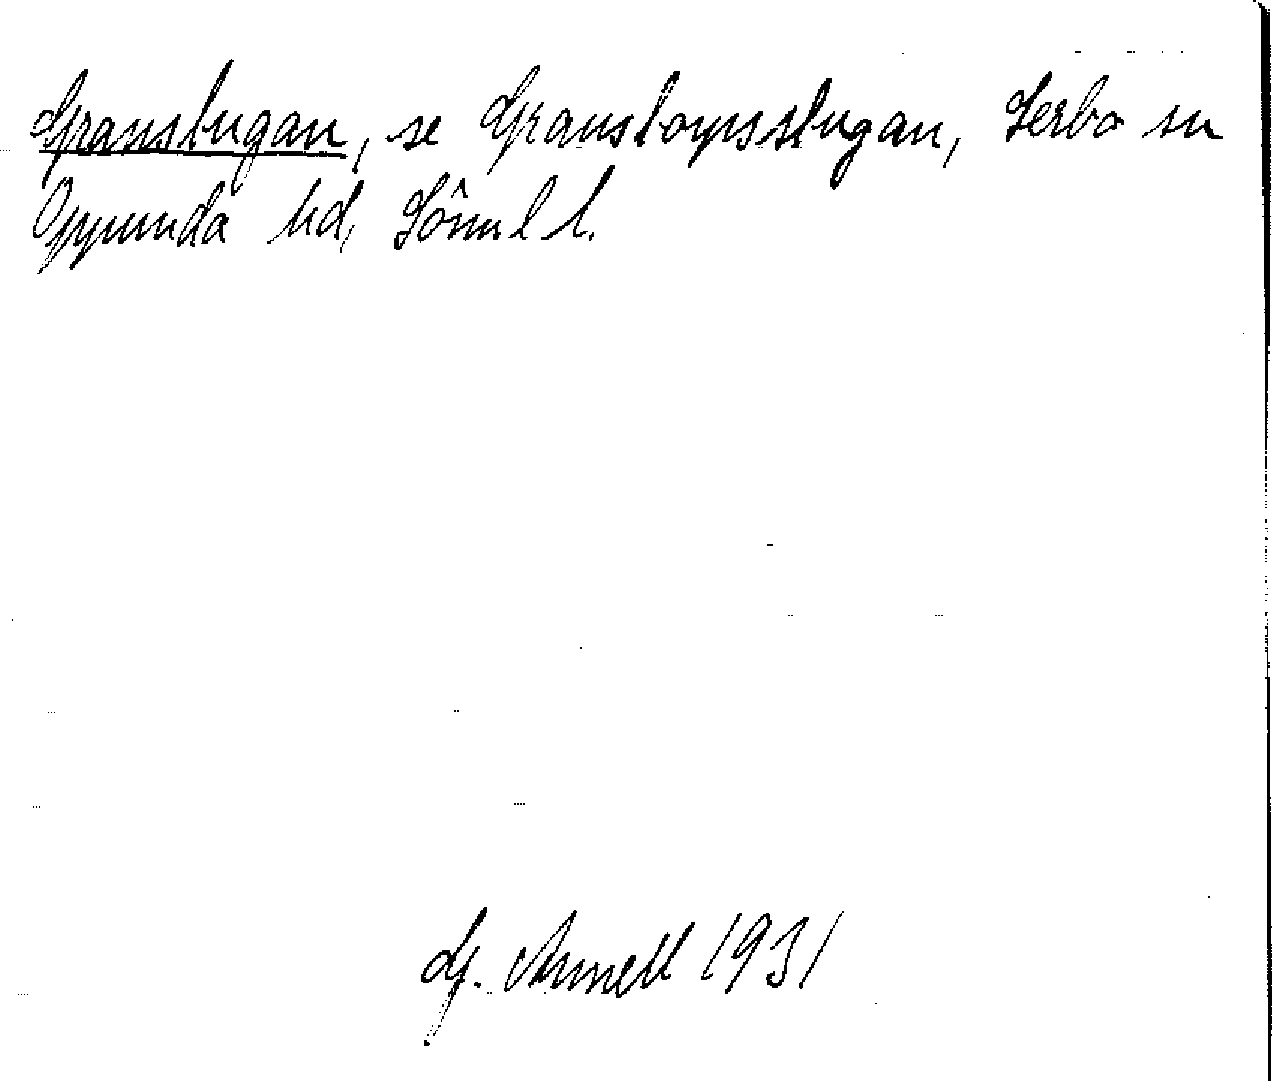 Granstugan, se Granstorpsstugan, Lerbo sn
Oppunda hd, Söml l.
G. Annell 1931